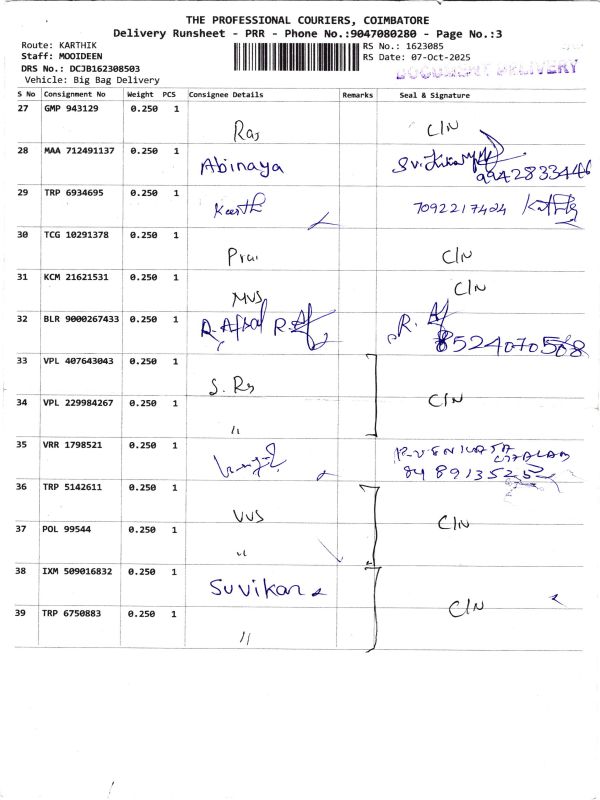 THE PROFESSIONAL COURIERS, COIMBATORE
Delivery Runsheet - PRR - Phone No.:9047080280 - Page No.:3
Route: KARTHIK
Staff: MOOIDEEN
DRS No.: DCJB162308503
Vehicle: Big Bag Delivery
RS No.: 1623085
RS Date: 07-Oct-2025
DOCUMENT DELIVERY
S No Consignment No Weight PCS Consignee Details Remarks Seal & Signature
27 GMP 943129 0.250 1
Raj C/N
28 MAA 712491137 0.250 1
Abinaya
9942833446
29 TRP 6934695 0.250 1
Karth 7092217404
30 TCG 10291378 0.250 1
C/N
31 KCM 21621531 0.250 1
MVS C/N
32 BLR 9000267433 0.250 1
R. Afsal R. Af R. Af
8524070508
33 VPL 407643043 0.250 1
S. Rs
34 VPL 229984267 0.250 1
C/N
"
35 VRR 1798521 0.250 1
8489135252
36 TRP 5142611 0.250 1
VVS
37 POL 99544 0.250 1
C/N
"
38 IXM 509016832 0.250 1
Suvikar
39 TRP 6750883 0.250 1
C/N
"